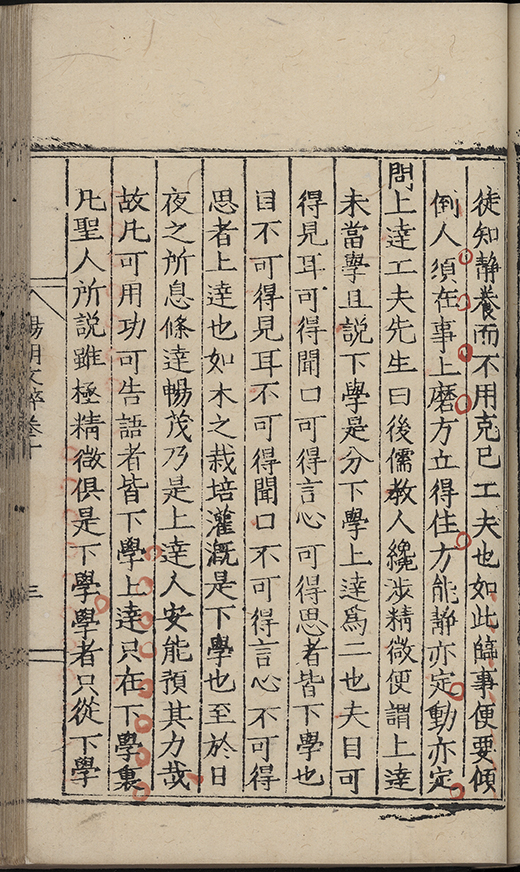 徒知靜養而不用克己工夫也如此臨事便要傾
倒人須在事上磨方立得住方能靜亦定動亦定
問上達工夫先生曰後儒教人纔涉精微便謂上達
未當學且說下學是分下學上達為二也夫目可
得見耳可得聞口可得言心可得思者皆下學也
目不可得見耳不可得聞口不可得言心不可得
思者上達也如木之栽培灌溉是下學也至於日
夜之所息條達暢茂乃是上達人安能預其力哉
故凡可用功可告語者皆下學上達只在下學裏
凡聖人所說雖極精微俱是下學學者只從下學
陽明文粹卷十
三